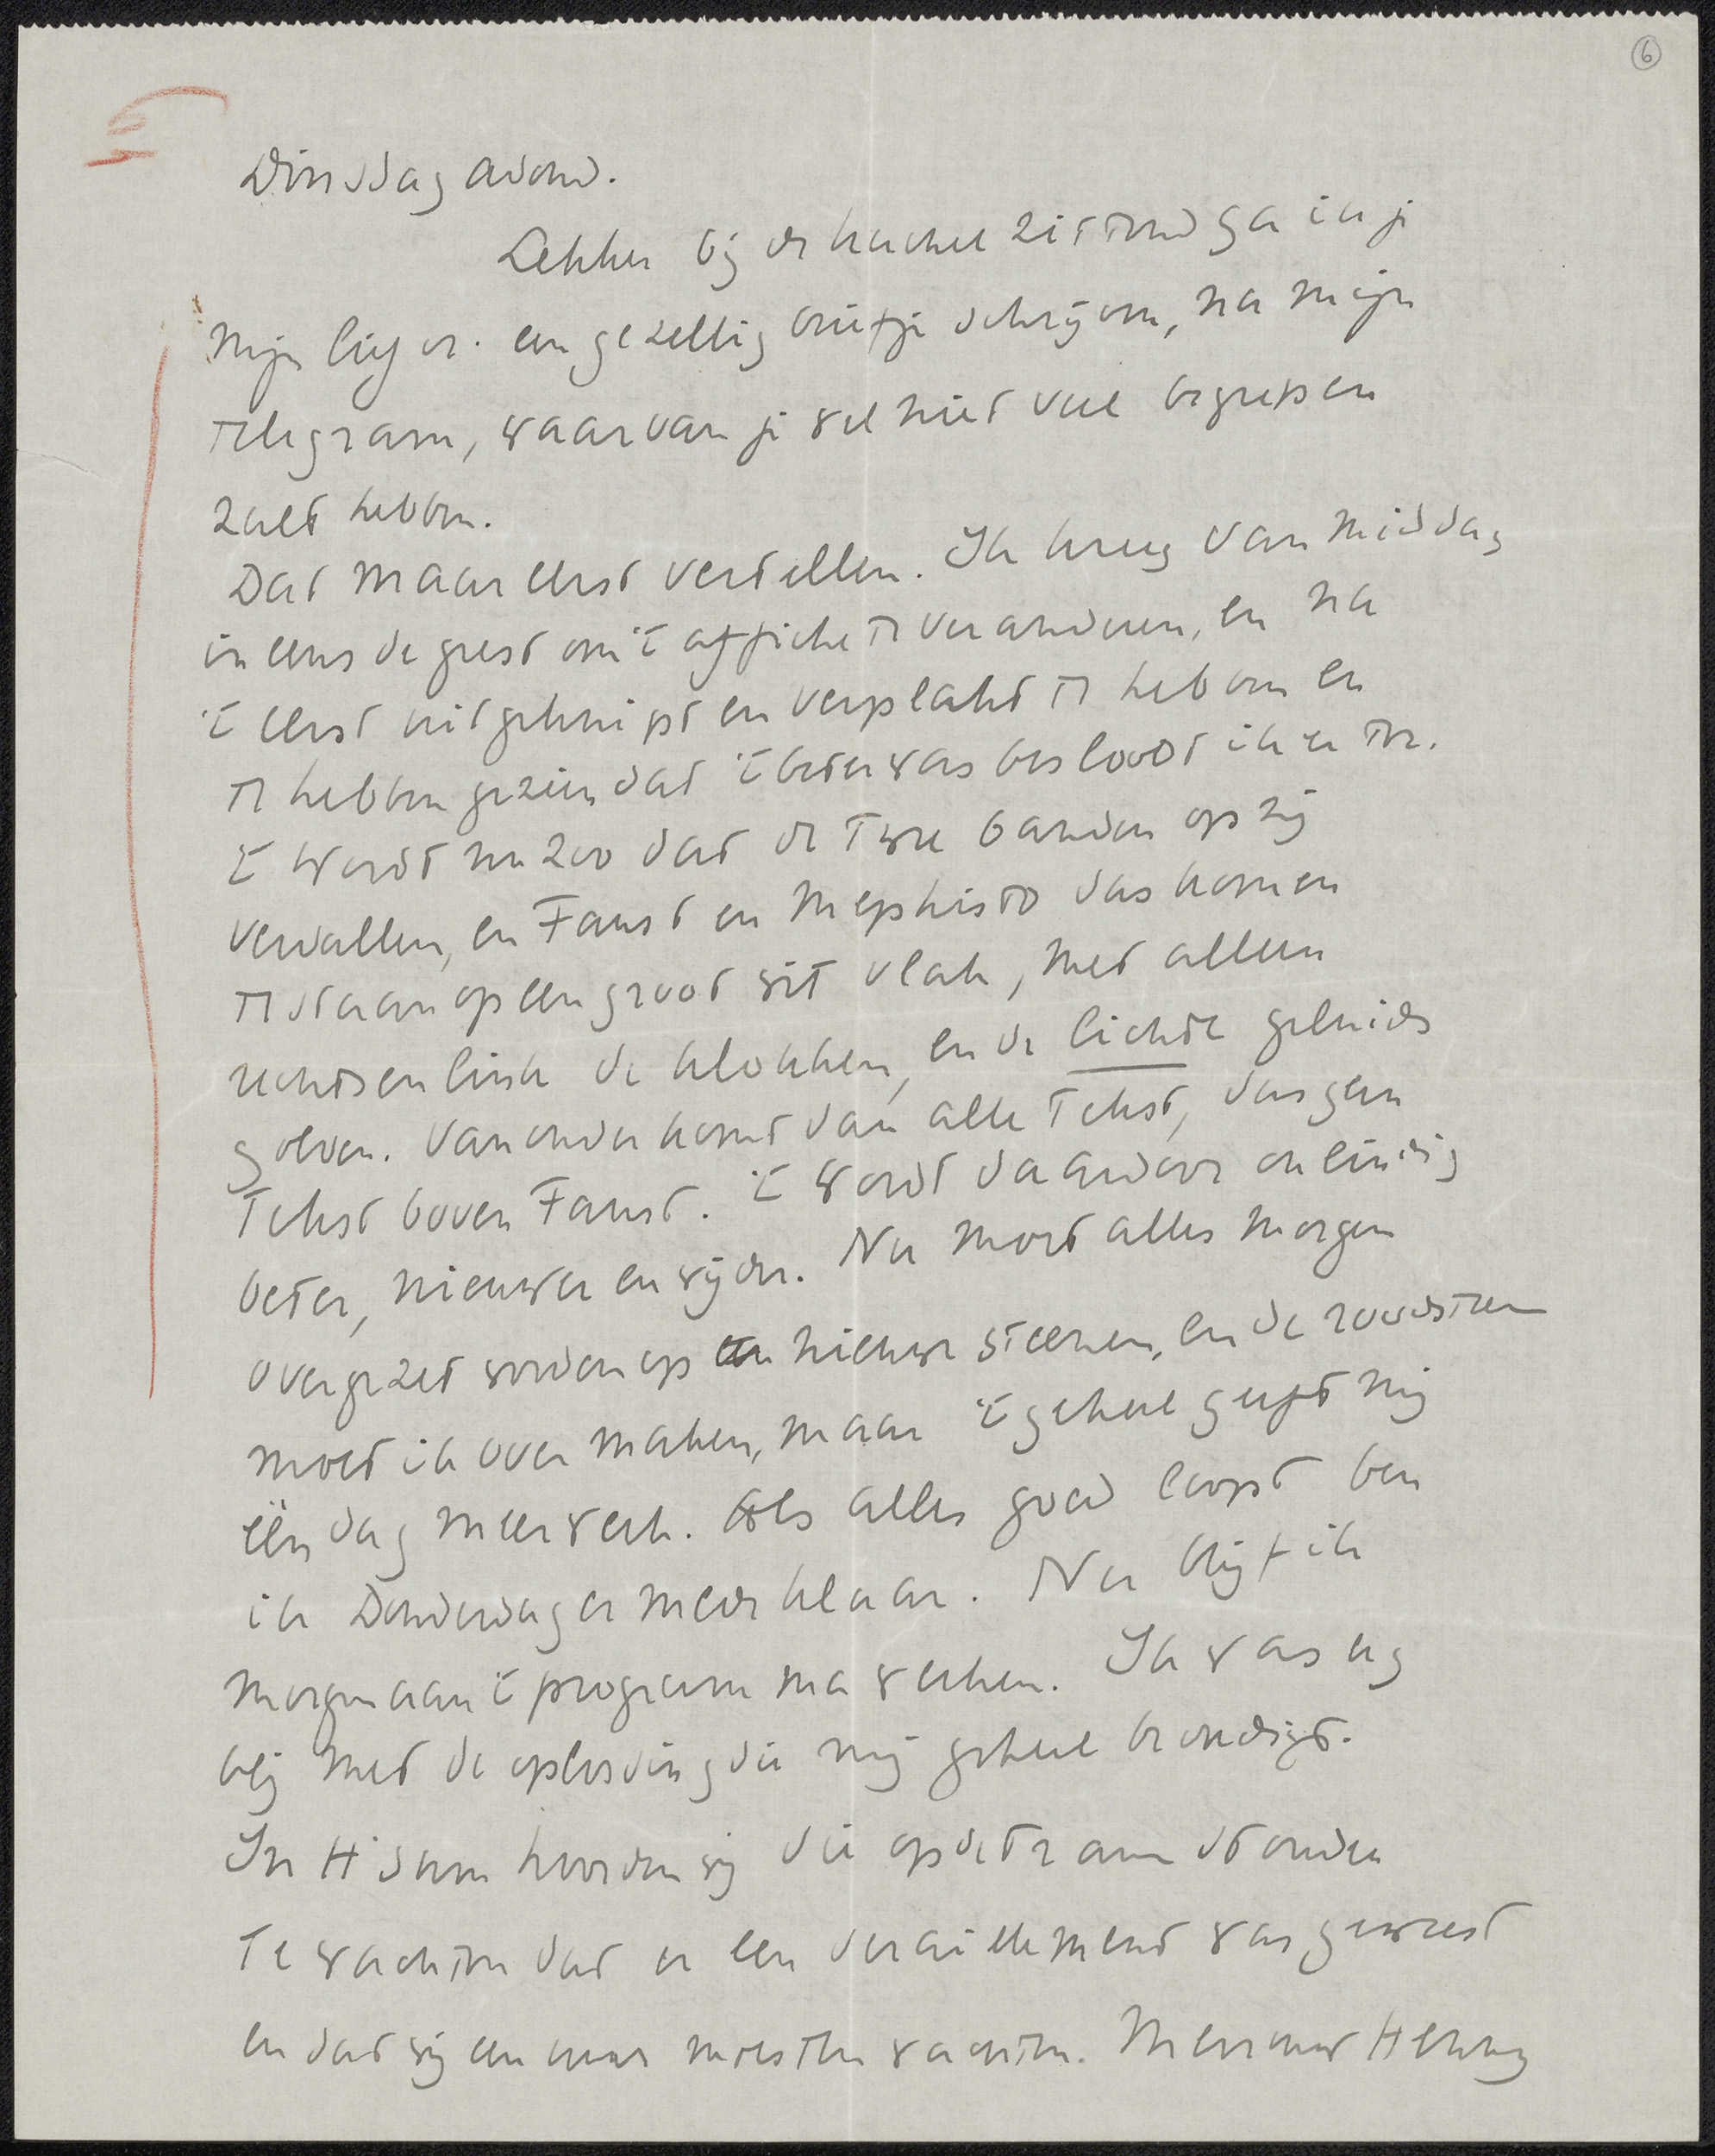 6
Dinsdag avond.
Lekker bij de kachel zittend ga ik je
mijn een gezellig briefje schrijven, na mijn
telegram, waarvan je wel niet veel begrepen
zult hebben.
Dat maar eerst vertellen. Ik kreeg vanmiddag
ineens de geest om 't affiche te veranderen, en na
't eerst uitgeknipt en verplakt te hebben en
te hebben gezien dat 't beter was besloot ik er toe.
't Wordt nu zoo dat de twee banden op zij
vervallen, en Faust en Mephisto dus komen
te staan op een groot wit vlak, met alleen
rechts en link de klokken, en de lichte geluids
golven. Van onder komt dan alle tekst, dus geen
tekst boven Faust. 't Wordt daardoor oneindig
beter, nieuwer en wijder. Nu moet alles morgen
overgezet worden op nieuwe steenen, en de roodsteen
moet ik over maken, maar 't geheel geeft mij
één dag meer werk. Als alles goed loopt ben
ik Donderdag er mede klaar. Nu blijf ik
morgen aan 't programma werken. Ik was erg
blij met de oplossing die mij geheel bevredigt.
In H'sum hoorden wij die op de tram stonden
te wachten dat er een deraillement was geweest
en dat wij een uur moesten wachten. Mevrouw